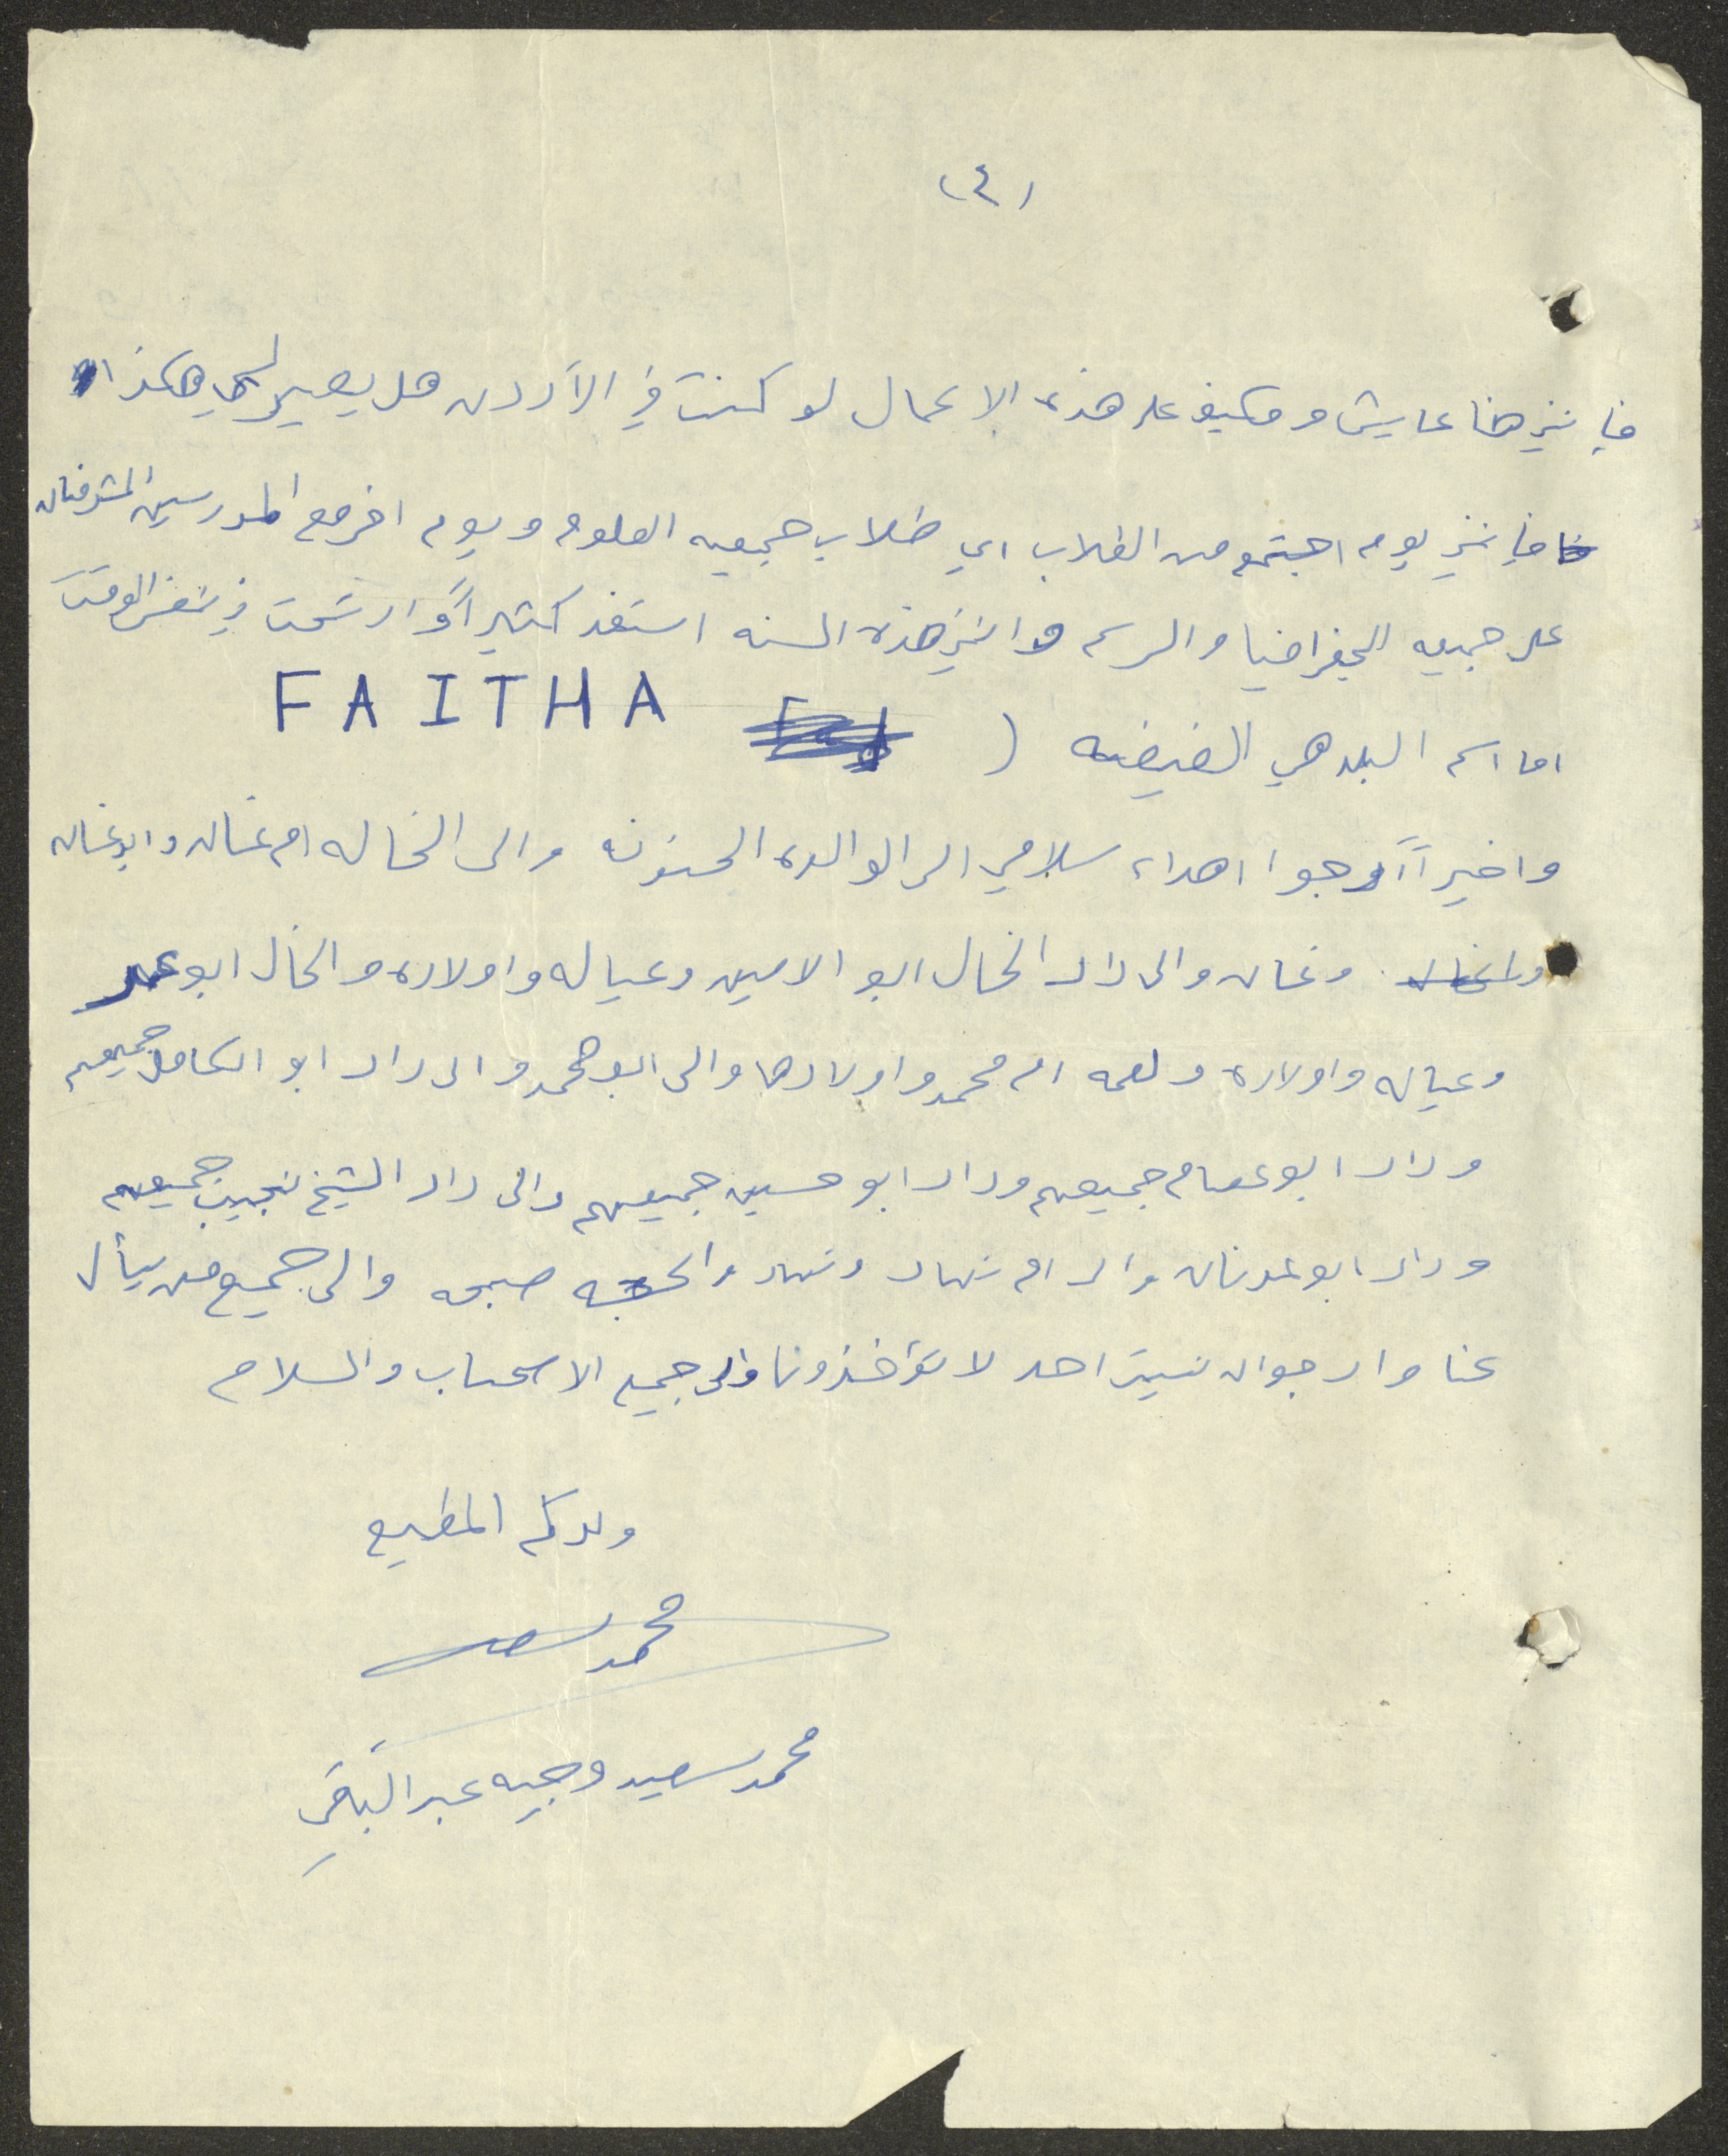 (٤)
فإنني هنا عايش ومكيف على هذه الاعمال لو كنت في الآردن هل يصير لي هكذا
فإنني يوم اجتمع من الطلاب اي طلاب جمعيه العلوم ويوم اخر مع المدرسين المشرفان
على جمعيه الجغرافيا والرسم وانني هذه السنه استفد كثيراً وارتحت في نفس الوقت
اما اسم البلد هي الفيضه ( FAITHA
واخيراً آرجوا اهداء سلامي الى الوالده الحنونه والى الخاله ام غسان وابو غسان
وغسان والى دار الخال ابو الامين وعياله واولاده والخال ابو
وعياله واولاده ولعمه ام محمد واولادها والى ابو محمد والى دار ابو الكامل جميعهم
ودار ابو عصام جميعهم ودار ابو حسين جميعهم والى دار الشيخ نجيب جميعهم
ودار ابو عدنان والى ام نهاد ونهاد والحجه صبحه والى جميع من يسأل
عنا وارجوا ان نسيت احد لا تؤاخذونا والى جميع الاصحاب والسلام
ولدكم المطيع
محمد سعيد
محمد سعيد وجيه عبد الباقي